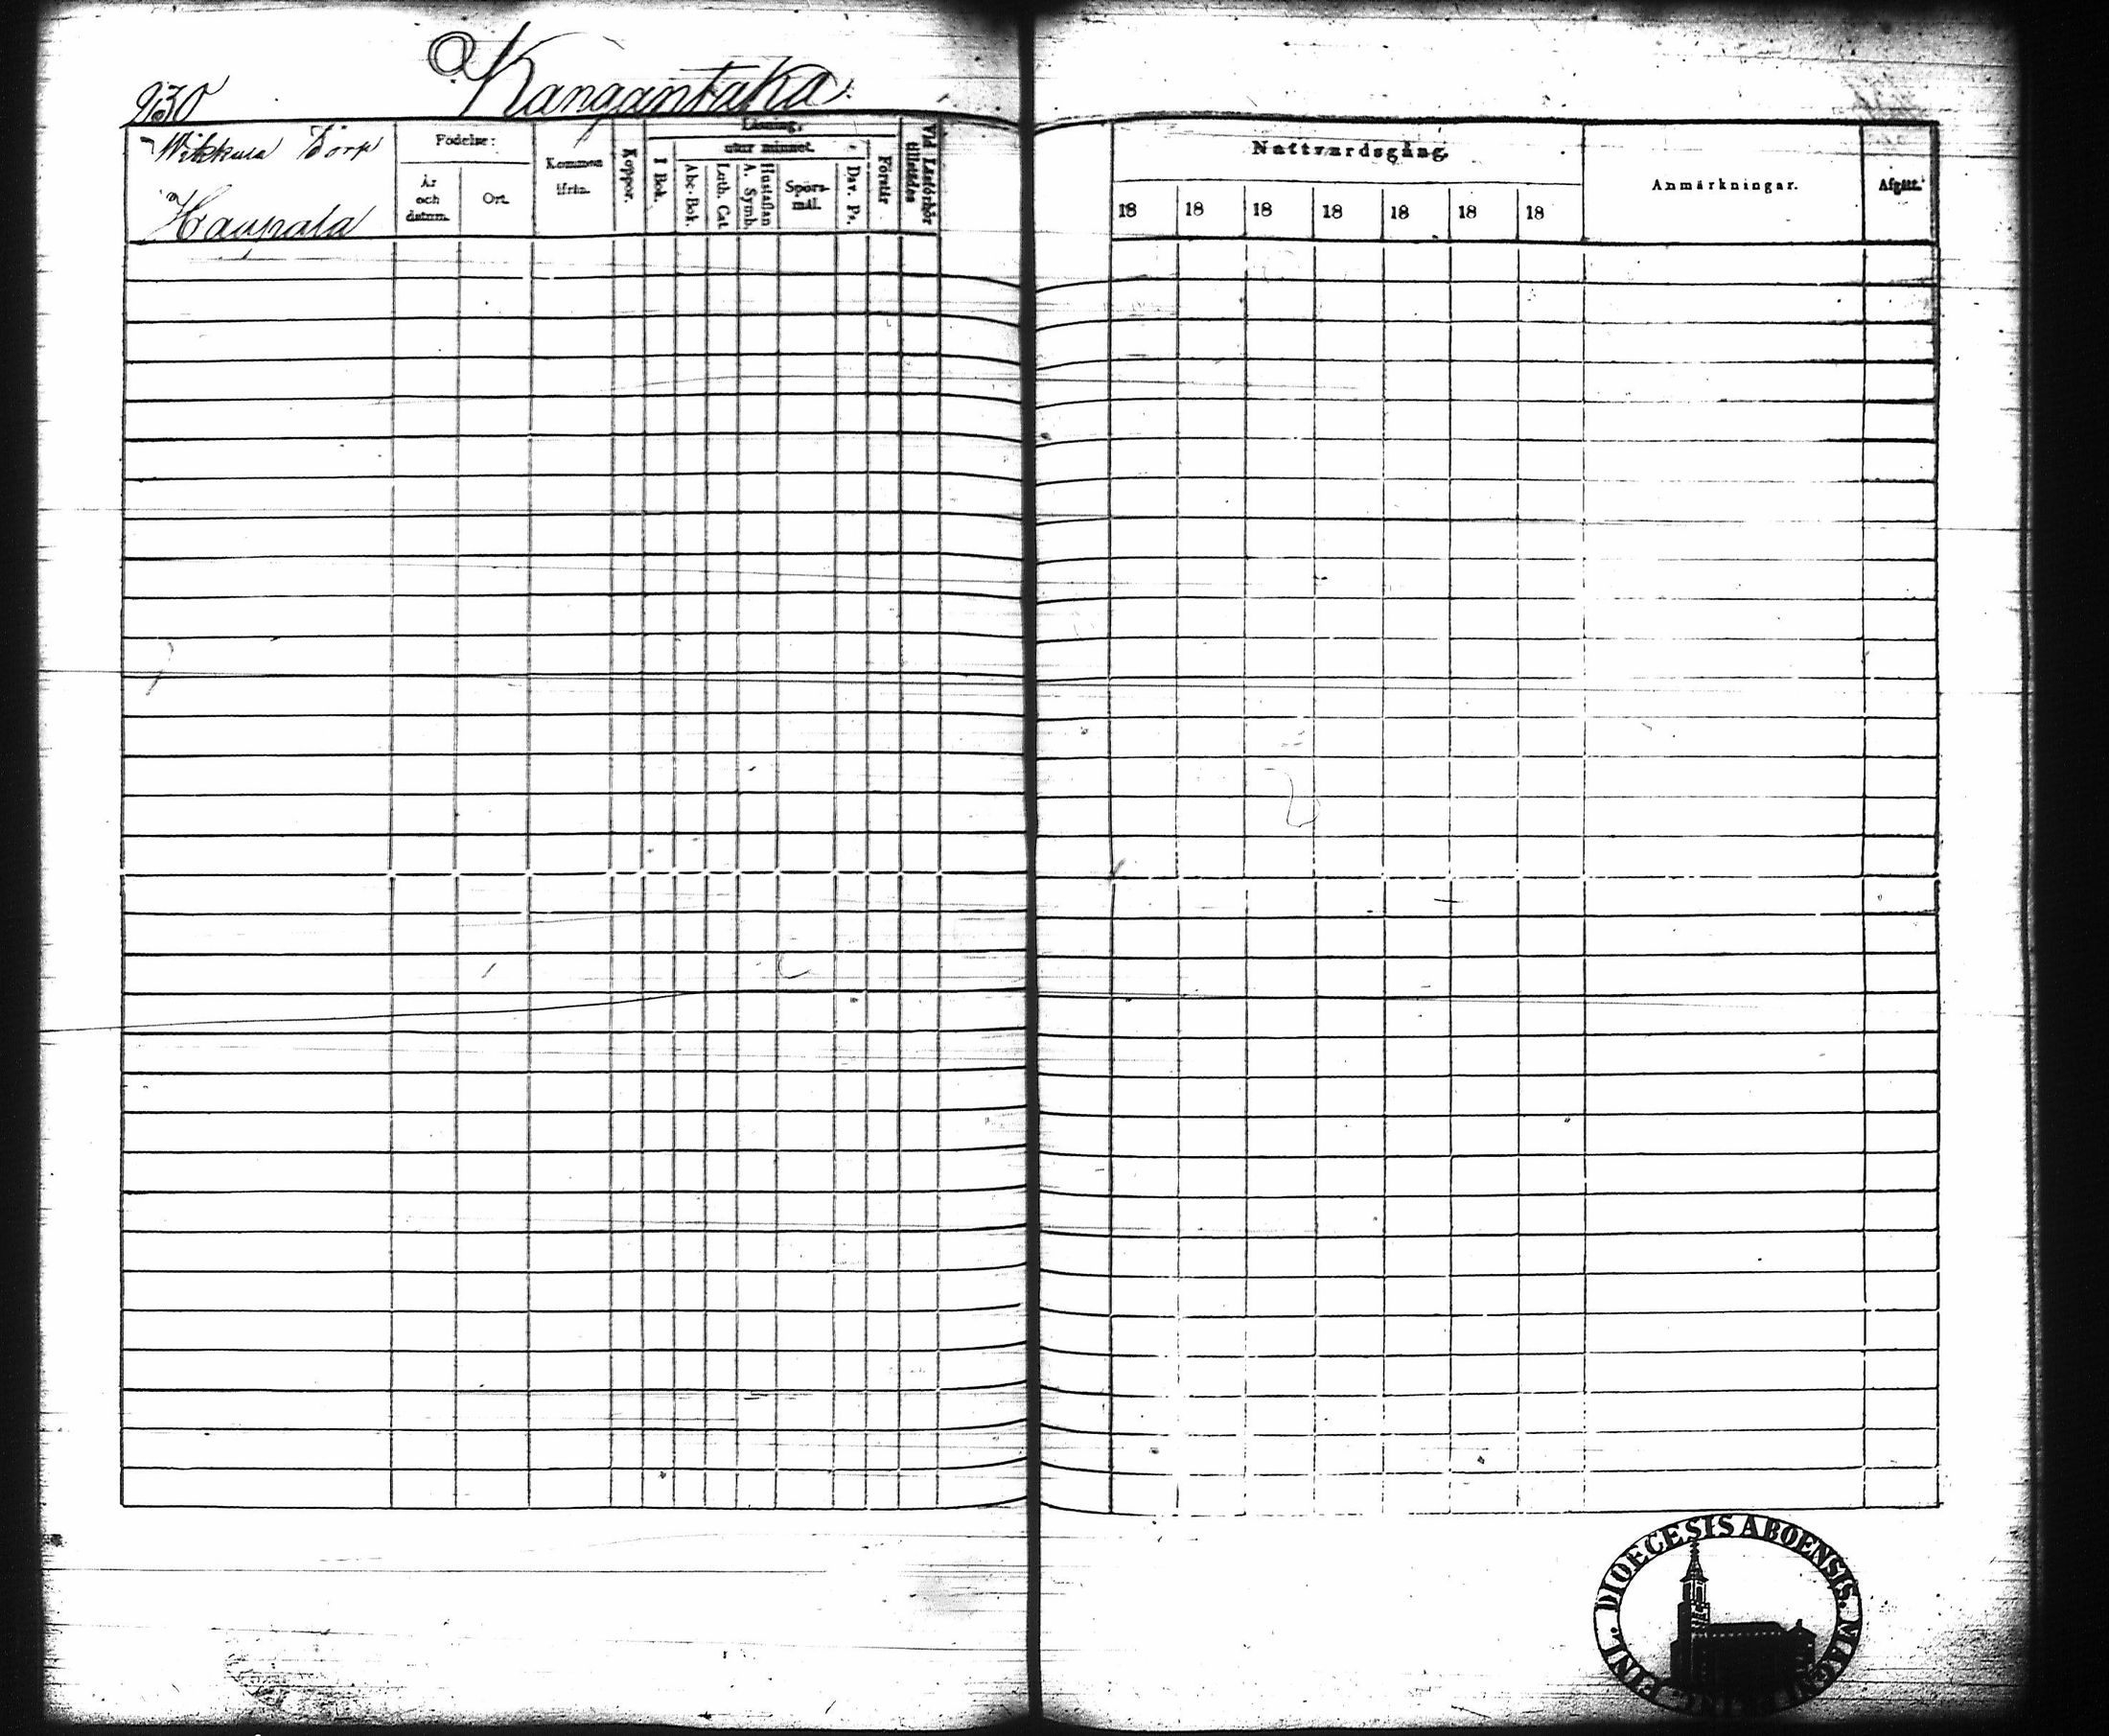 930 Kangantaka
Wikkula Torp
Haapala
Födelse:
År och datum.
Ort.
Kommen ifrån.
Koppor.
Läsning.
utur minnet.
I Bok.
Abc-Bok.
Luth. Cat
A. Symb.
Hustaflan
Spörsmål.
Dav. Ps.
Förstår
Vid Läsförhör tillstädes
Nattvardsgång.
18 18 18 18 18 18 18
Anmärkningar.
Afgått.
FINL. DIOECESIS ABOENSIS. MAGNI